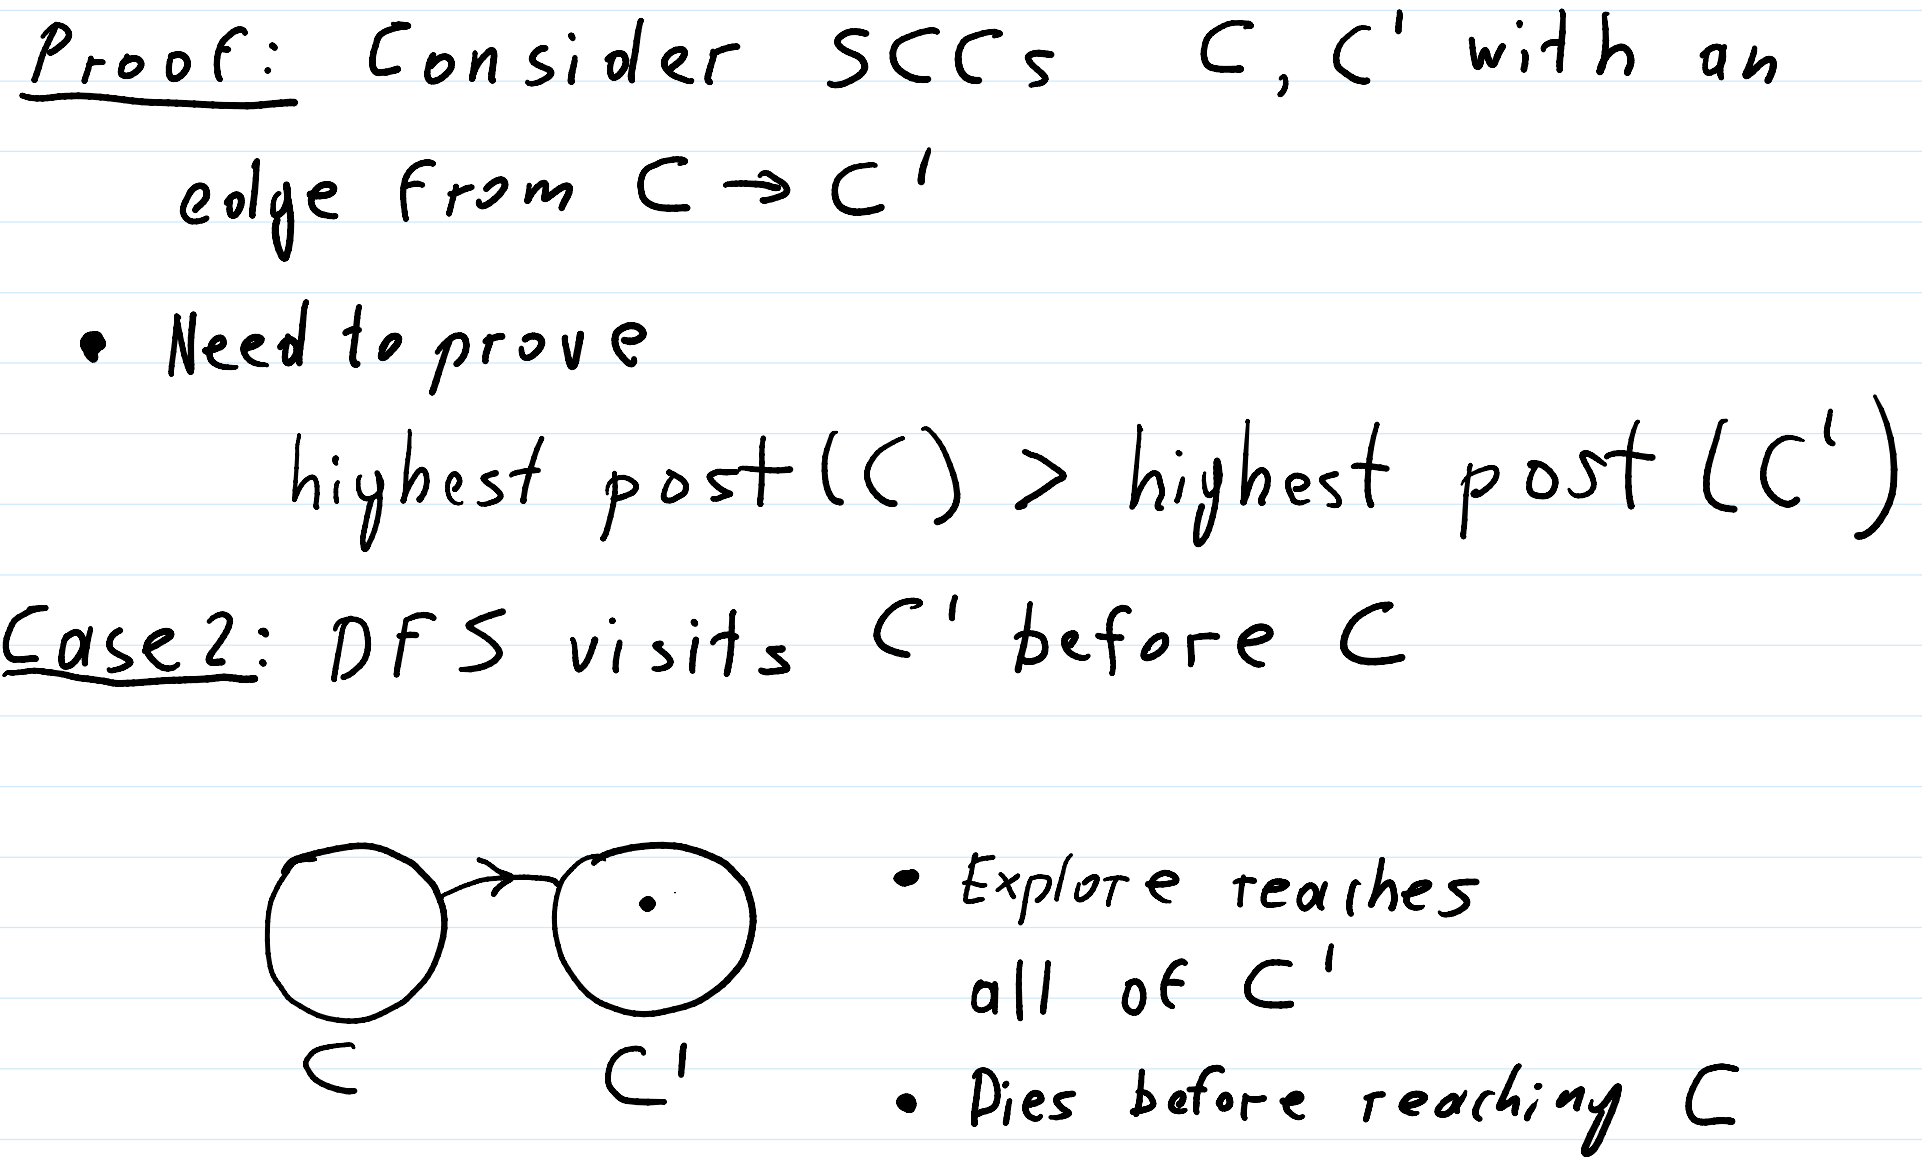 Proof: Consider SCCs C, C' with an
edge from C → C'
• Need to prove
highest post (C) > highest post (C')
Case 2: DFS visits C' before C
• Explore reaches
all of C'
C C'
• Dies before reaching C